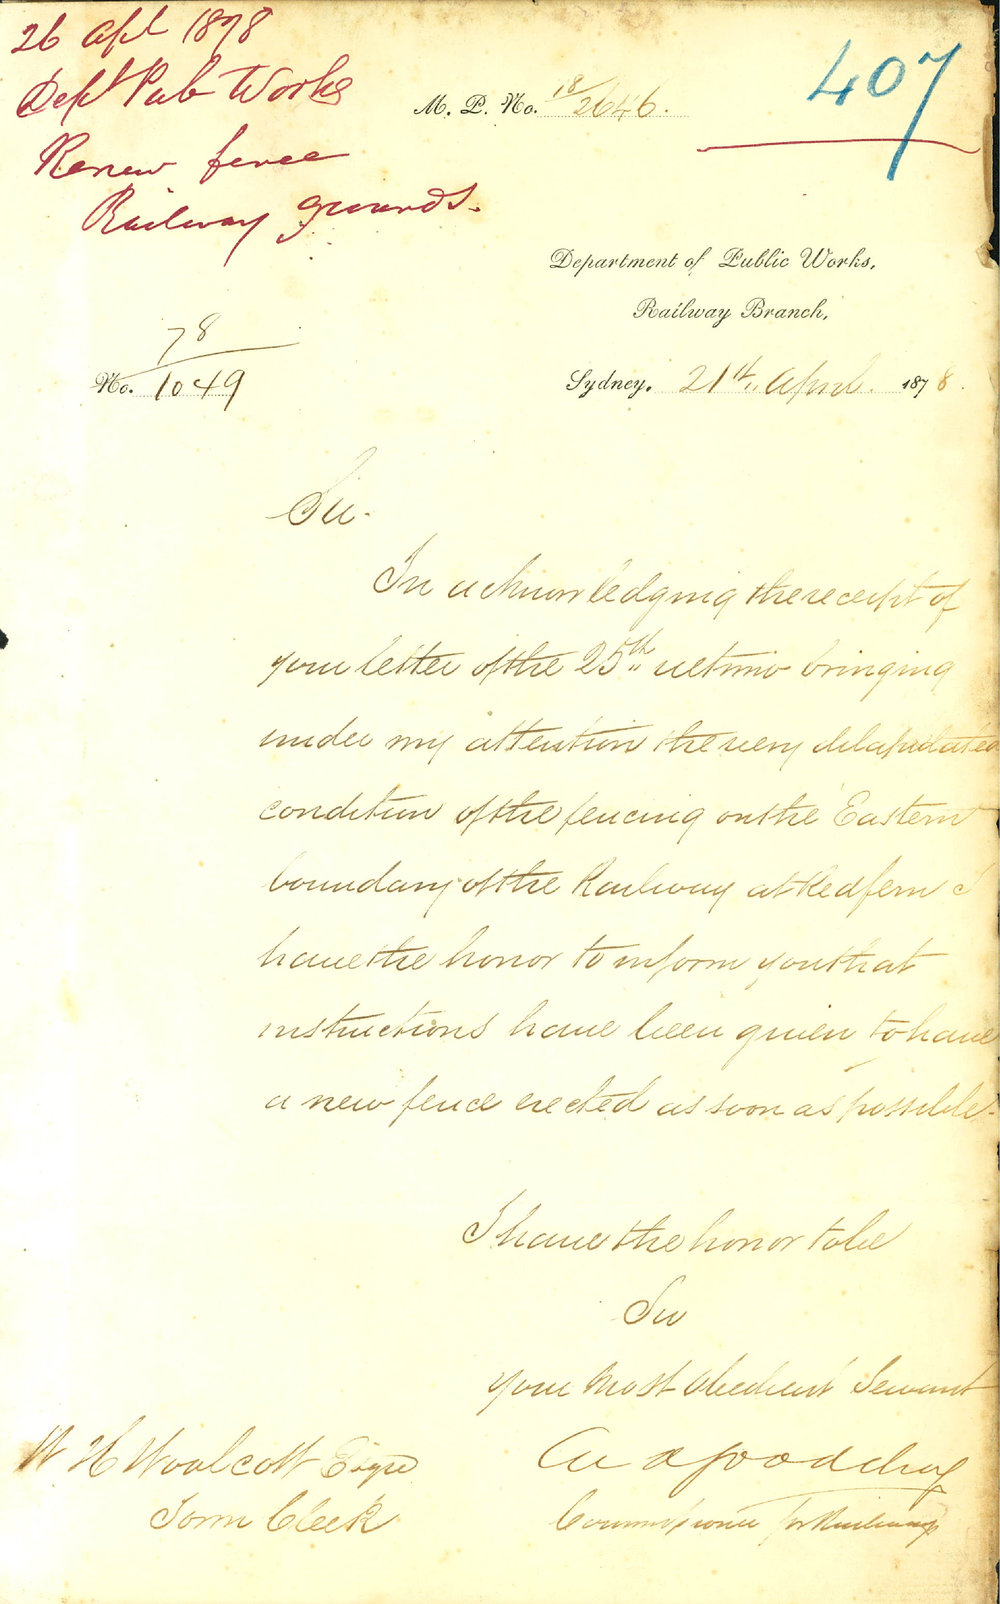 26 Apl 1878
Dept Pub Works
Renew fence
Railway grounds.
407
M. P. No. 78/2646.
Department of Public Works,
Railway Branch,
78
No. 1049
Sydney. 21st April. 1878.
Sir.
In acknowledging the receipt of
your letter of the 25th ultimo bringing
under my attention the very dilapidated
condition of the fencing on the Eastern
boundary of the Railway at Redfern I
have the honor to inform you that
instructions have been given to have
a new fence erected as soon as possible.
I have the honor to be
Sir
Your Most Obedient Servant
Goodchap
Commissioner for Railways
W H Woolcott Esqre
Town Clerk